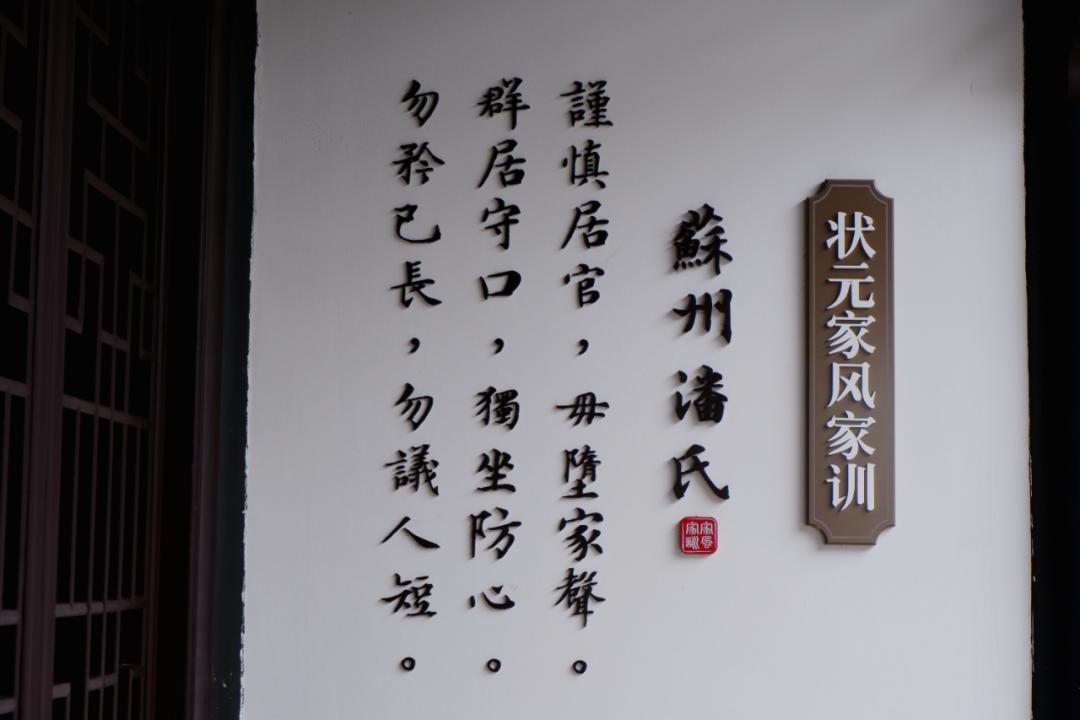 状元家风家训
蘇州潘氏
家风
家訓
謹慎居官，毋墮家聲。
群居守口，獨坐防心。
勿矜已長，勿議人短。